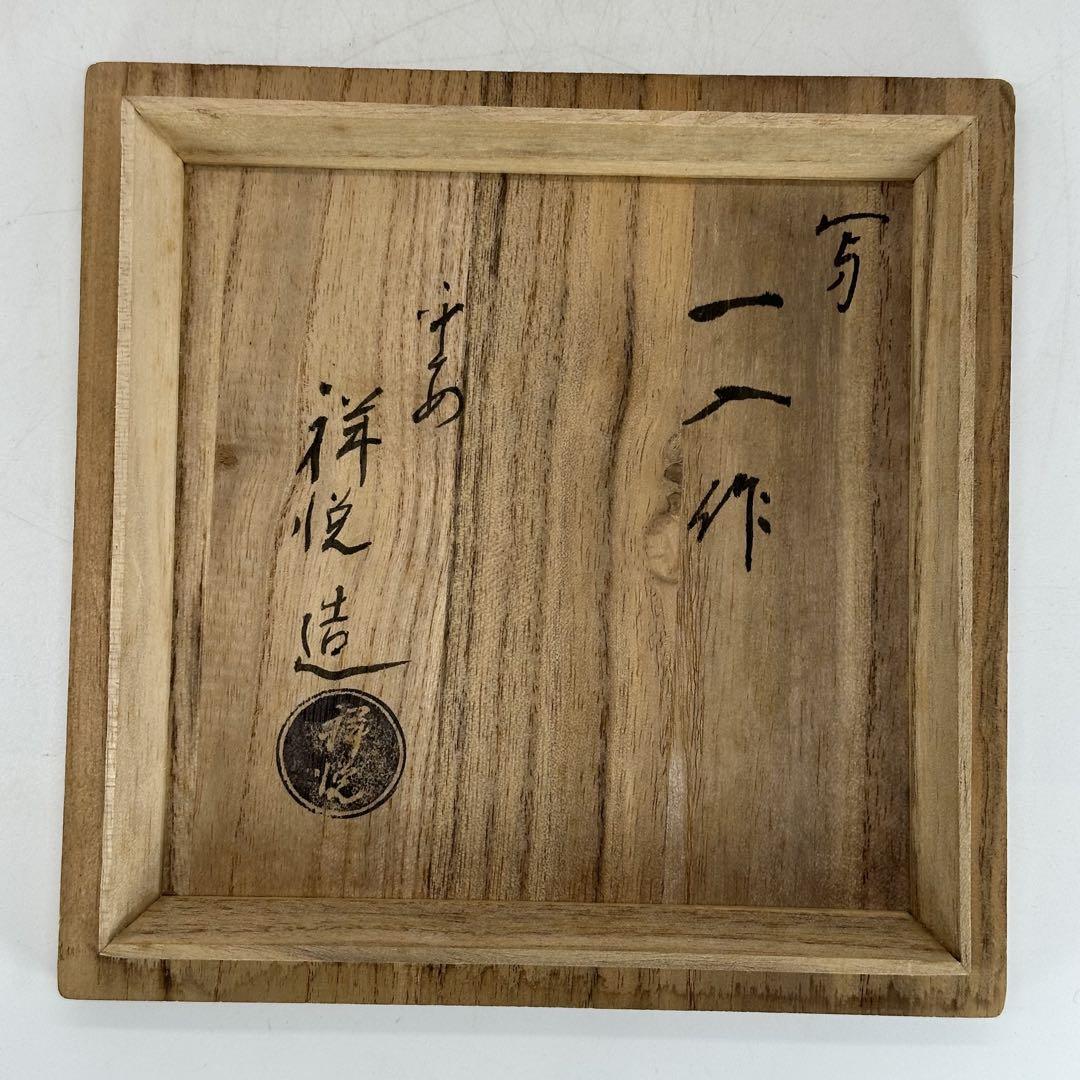 写
一入作
平安
祥悦造
祥悦